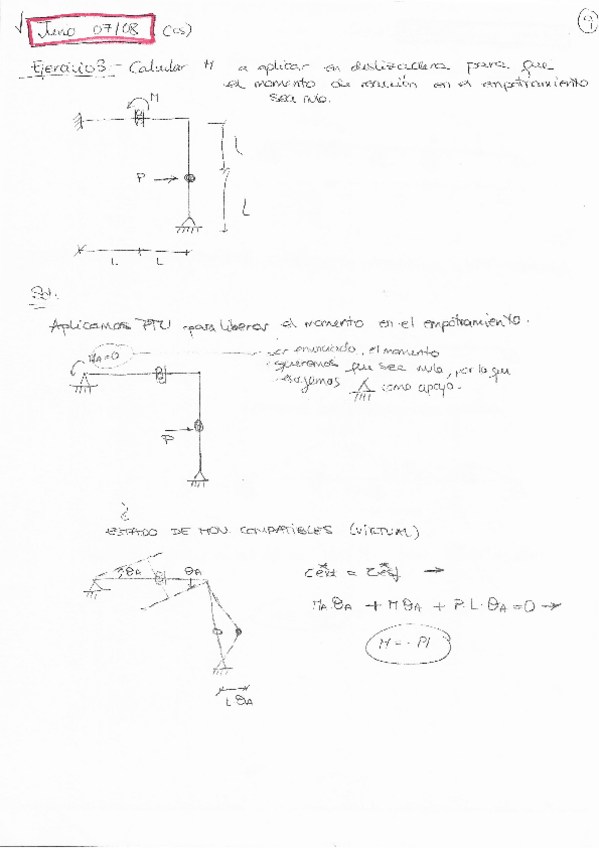 Junio 07/08 (cs)
9
Ejercicio 3.- Calcular M a aplicar en deslizadera para que
el momento de reacción en el empotramiento
sea nulo.
M
L
P
L
L L
Sol.
Aplicamos PTV para liberar el momento en el empotramiento.
MA=0
enunciado, el momento
queremos que sea nulo, por lo que
escojamos como apoyo.
P
ESTADO DE MOV. COMPATIBLES (VIRTUAL)
θA θA
MA.θA + MθA + P.L.θA = 0 →
M = - Pl
L.θA